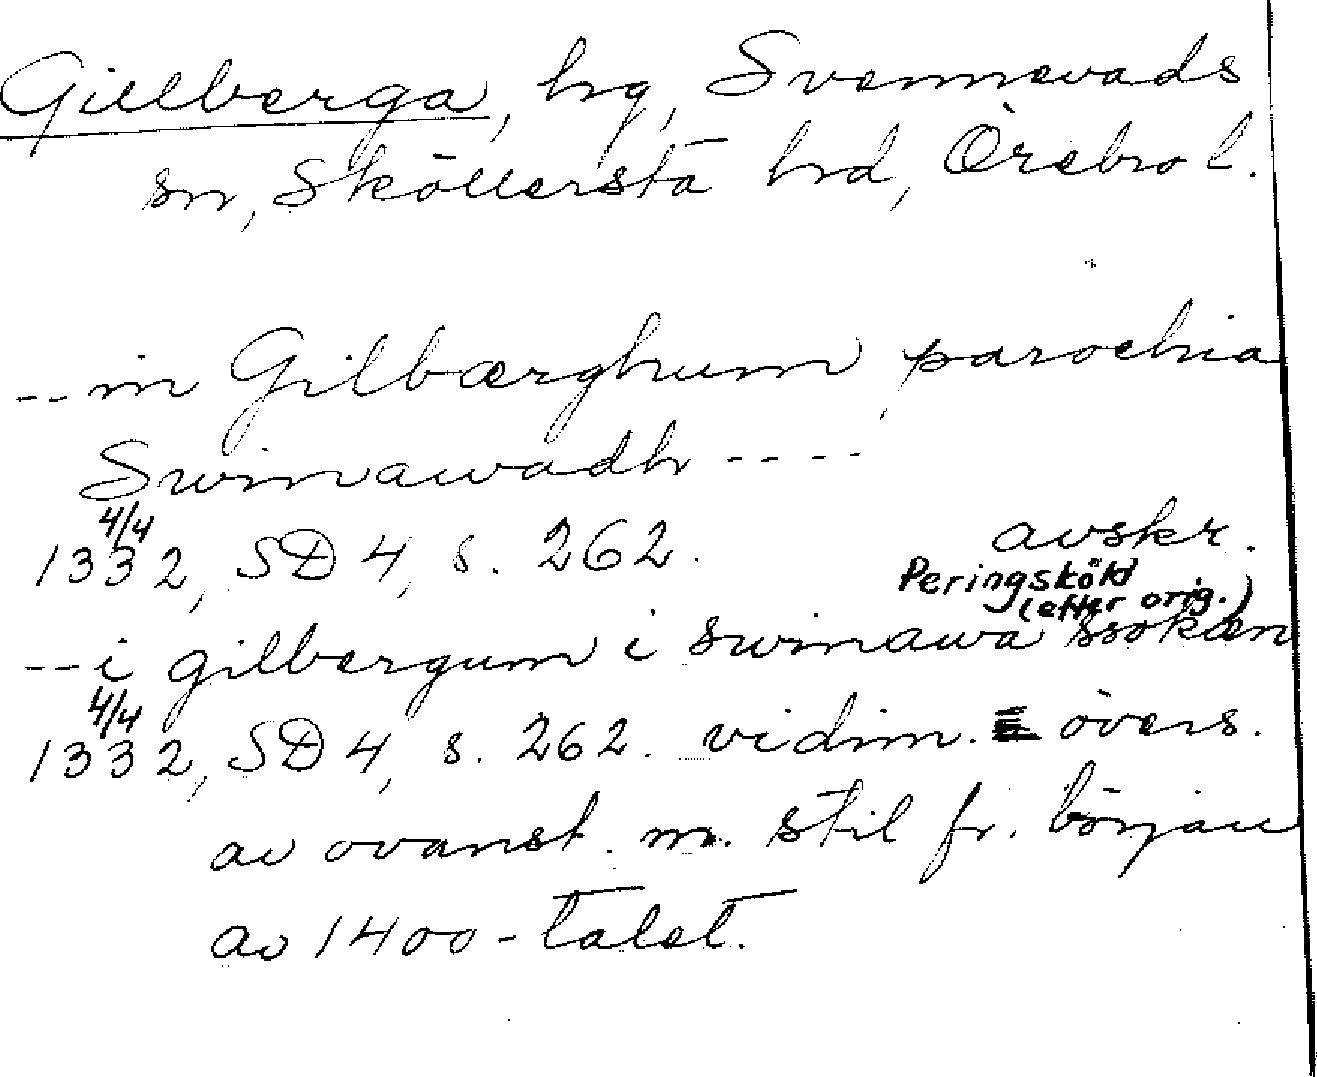 Gillberga, hrg, Svennevads
sn, Sköllersta hrd, Örebro l.
--in Gilbærghum, parochia
Swinawadh ----
4/4
1332, SD 4, s. 262. avskr.
Peringsköld
(efter orig.)
--i gilbergum i swinawa ssokæn
4/4
1332, SD 4, s. 262. vidim. övers.
av ovanst. m. stil fr. början
av 1400-talet.